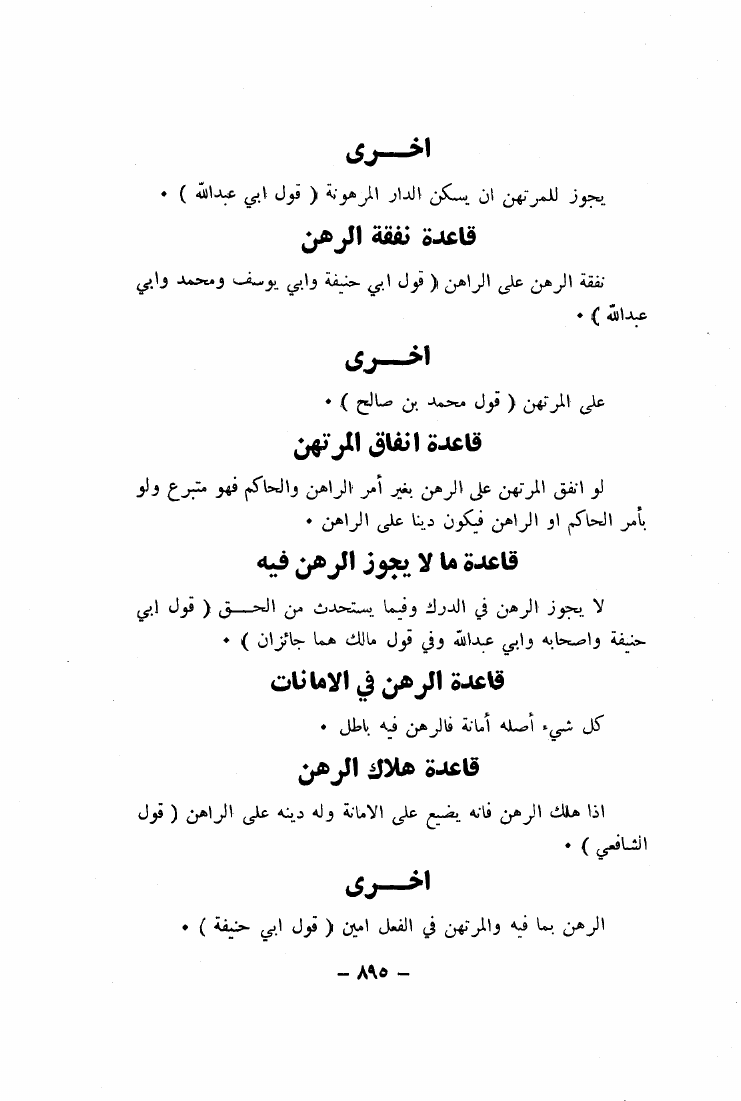 اخـــرى
يجوز للمرتهن ان يسكن الدار المرهونة ( قول ابي عبدالله ) •
قاعدة نفقة الرهن
نفقة الرهن على الراهن ( قول ابي حنيفة وابي يوسف ومحمد وابي
عبدالله ) •
اخـــرى
على المرتهن ( قول محمد بن صالح ) •
قاعدة انفاق المرتهن
لو انفق المرتهن على الرهن بغير أمر الراهن والحاكم فهو متبرع ولو
بأمر الحاكم او الراهن فيكون دينا على الراهن •
قاعدة ما لا يجوز الرهن فيه
لا يجوز الرهن في الدرك وفيما يستحدث من الحـــق ( قول ابي
حنيفة واصحابه وابي عبدالله وفي قول مالك هما جائزان ) •
قاعدة الرهن في الامانات
كل شيء أصله أمانة فالرهن فيه باطل •
قاعدة هلاك الرهن
اذا هلك الرهن فانه يضيع على الامانة وله دينه على الراهن ( قول
الشافعي ) •
اخـــرى
الرهن بما فيه والمرتهن في الفعل امين ( قول ابي حنيفة ) •
– ٨٩٥ –